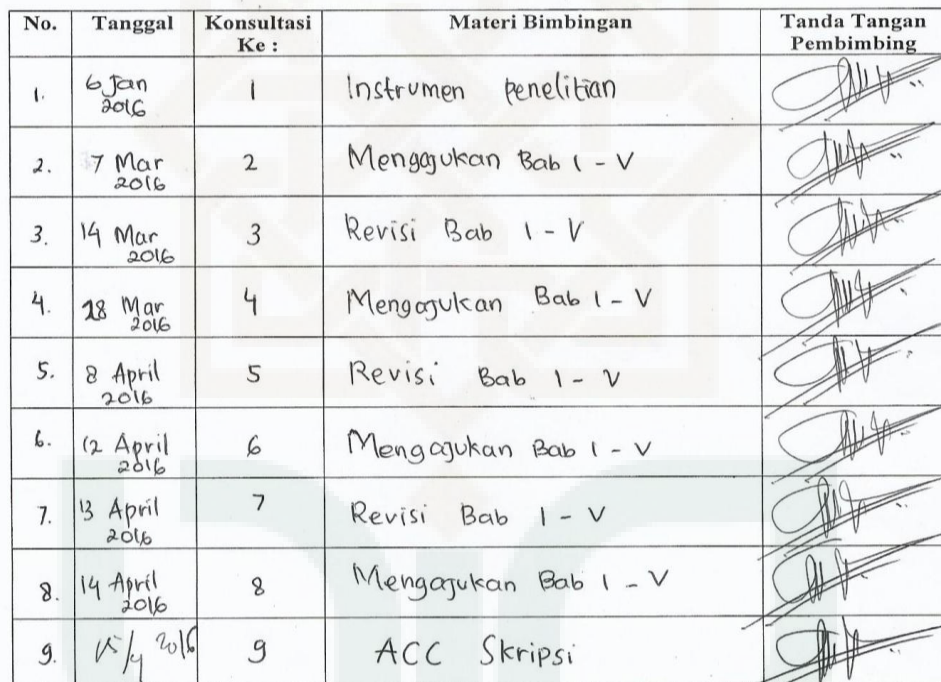 No. Tanggal Konsultasi Ke : Materi Bimbingan Tanda Tangan Pembimbing
1. 6 Jan 2016 1 Instrumen Penelitian
2. 7 Mar 2016 2 Mengajukan Bab I - V
3. 14 Mar 2016 3 Revisi Bab I - V
4. 28 Mar 2016 4 Mengajukan Bab I - V
5. 8 April 2016 5 Revisi Bab I - V
6. 12 April 2016 6 Mengajukan Bab I - V
7. 13 April 2016 7 Revisi Bab I - V
8. 14 April 2016 8 Mengajukan Bab I - V
9. 15/4 2016 9 ACC Skripsi